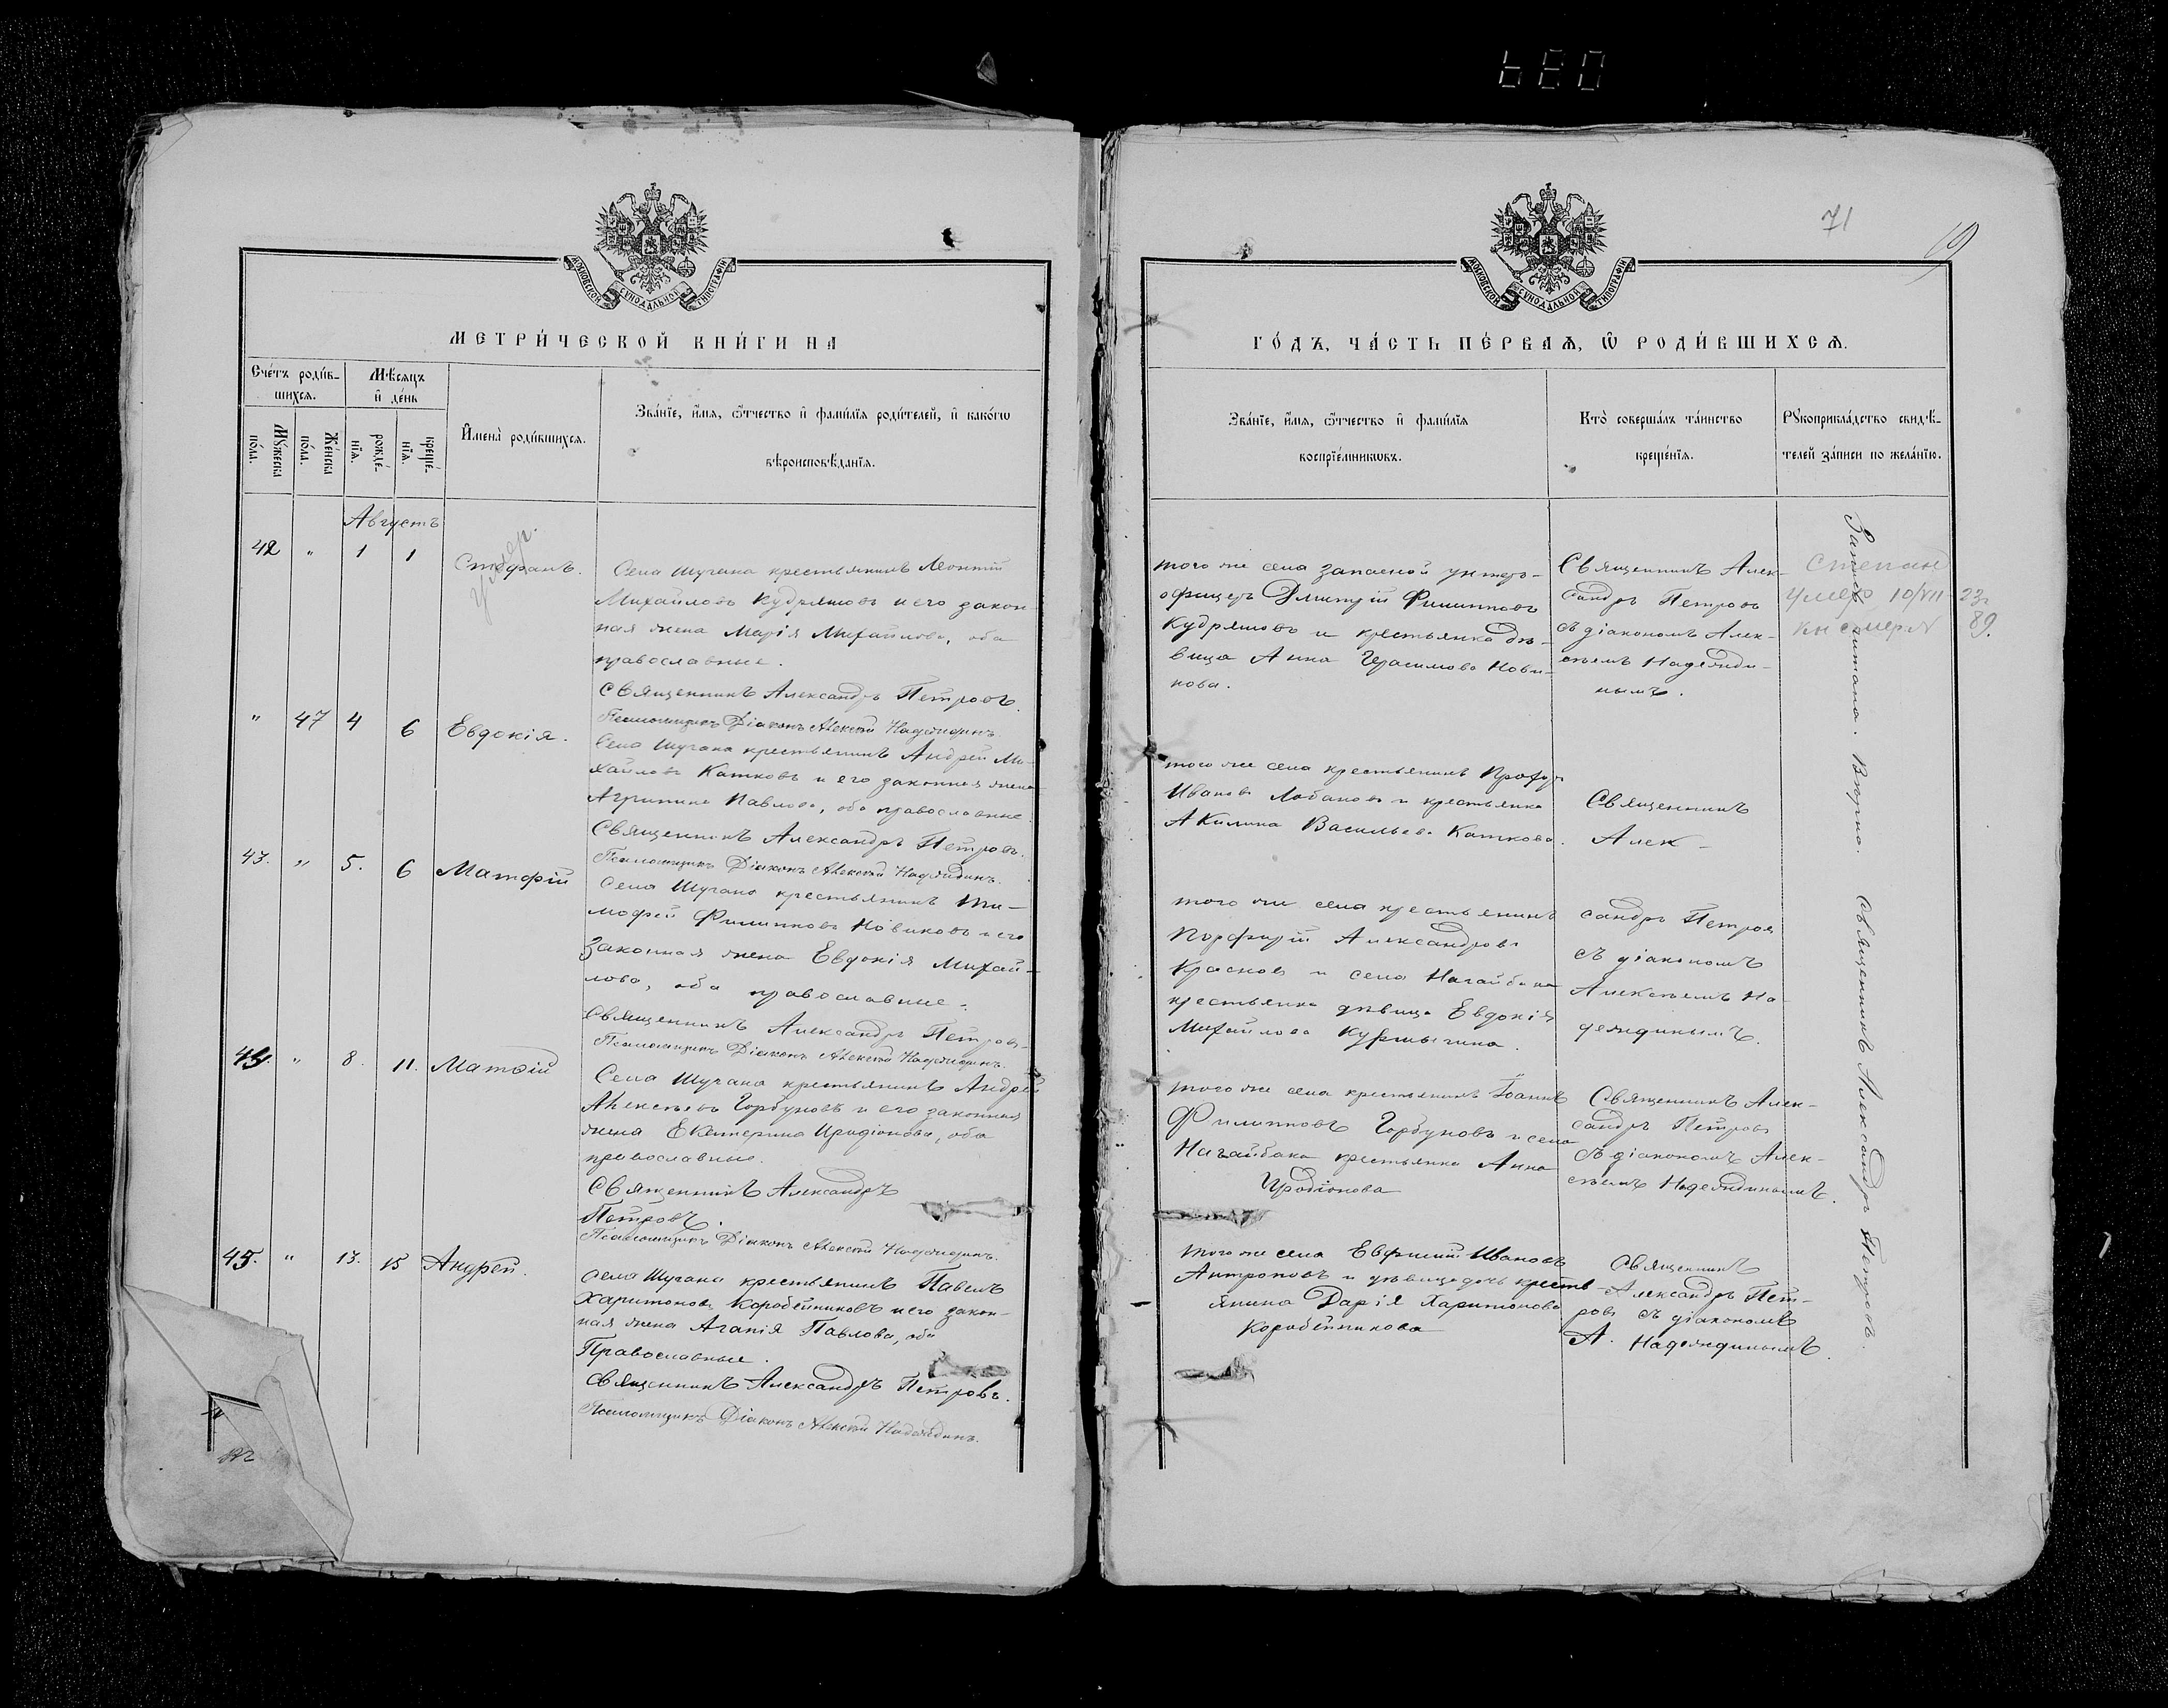 71
19
МОСКОВСКОЙ СѴНОДАЛЬНОЙ ТИПОГРАФІИ
МОСКОВСКОЙ СѴНОДАЛЬНОЙ ТИПОГРАФІИ
МЕТРИ́ЧЕСКОЙ КНИ́ГИ НА
ГО́ДЪ, ЧА́СТЬ ПЕ́РВАѦ, Ѿ РОДИ́ВШИХСѦ.
Сче́тъ роди́в-
шихсѧ.
Мѣ́сѧцъ
и҆ де́нь
Мꙋ́жеска
по́ла.
Же́нска
по́ла.
рожде́-
нїѧ.
креще́-
нїѧ.
И҆мена̀ роди́вшихсѧ.
Зва́нїе, и҆́мѧ, ѻ҆́тчество и҆ фами́лїѧ роди́телей, и҆ како́гѡ
вѣроисповѣ́данїѧ.
Зва́нїе, и҆́мѧ, ѻ҆́тчество и҆ фами́лїѧ
воспрїе́мникѡвъ.
Кто̀ соверша́лъ та́инство
креще́нїѧ.
Рꙋкоприкла́дство свидѣ́-
телей за́писи по жела́нїю.
Августъ
42 " 1 1 Стефанъ.
умер.
Села Шугана крестьянинъ Леонтій
Михайловъ Кудряшовъ и его закон
ная жена Марія Михайлова, оба
православные.
Священникъ Александръ Петровъ.
Псаломщикъ Діаконъ Алексѣй Надеждинъ.
того же села запасной унтеръ-
офицеръ Димитрій Филипповъ
Кудряшовъ и крестьянка дѣ-
вица Анна Герасимова Нови-
кова.
Священникъ Алек-
сандръ Петровъ
съ діакономъ Алек-
сѣемъ Надежди-
нымъ.
Степан
умер 10/VII-23г
89.
" 47 4 6 Евдокія.
Села Шугана крестьянинъ Андрей Ми-
хайловъ Катковъ и его законная жена
Агрипина Павлова, оба православные.
Священникъ Александръ Петровъ.
Псаломщикъ Діаконъ Алексѣй Надеждинъ.
того же села крестьянинъ
Ивановъ Лобановъ и крестьянка
Акилина Васильева Каткова.
Священникъ
Алек-
43. " 5. 6 Матфій
Села Шугана крестьянинъ Ти-
мофей Филипповъ Новиковъ и его
Законная жена Евдокія Михай-
лова, оба православные.
Священникъ Александръ Петровъ
Псаломщикъ Діаконъ Алексѣй Надеждинъ.
того же села крестьянинъ
Порфирій Александровъ
Красновъ и села Нагайбака
крестьянка дѣвица Евдокія
Михайлова Курмыгина.
сандръ Петровъ
съ діакономъ
Алексѣемъ На-
деждинымъ.
44. " 8. 11. Матѳій
Села Шугана крестьянинъ Андрей
Алексѣевъ Горбуновъ и его законная
жена Екатерина Иродіонова, оба
православные.
Священникъ Александръ
Петровъ.
Псаломщикъ Діаконъ Алексѣй Надеждинъ.
того же села крестьянинъ Іоаннъ
Филипповъ Горбуновъ и села
Нагайбака крестьянка Анна
Иродіонова
Священникъ Алек-
сандръ Петровъ
съ діакономъ Алек-
сѣемъ Надеждинымъ.
45. " 13. 15 Андрей.
Села Шугана крестьянинъ Павелъ
Харитоновъ Коробейниковъ и его закон-
ная жена Агапія Павлова, оба
Православные.
Священникъ Александръ Петровъ.
Псаломщикъ Діаконъ Алексѣй Надеждинъ.
того же села Евфимій Ивановъ
Антроповъ и дѣвица дочь кресть-
янина Дарія Харитонова
Коробейникова
Священникъ
Александръ Пет-
ровъ съ діакономъ
А. Надеждинымъ.
Запись читана. Вѣрно. Священникъ Александръ Петровъ.